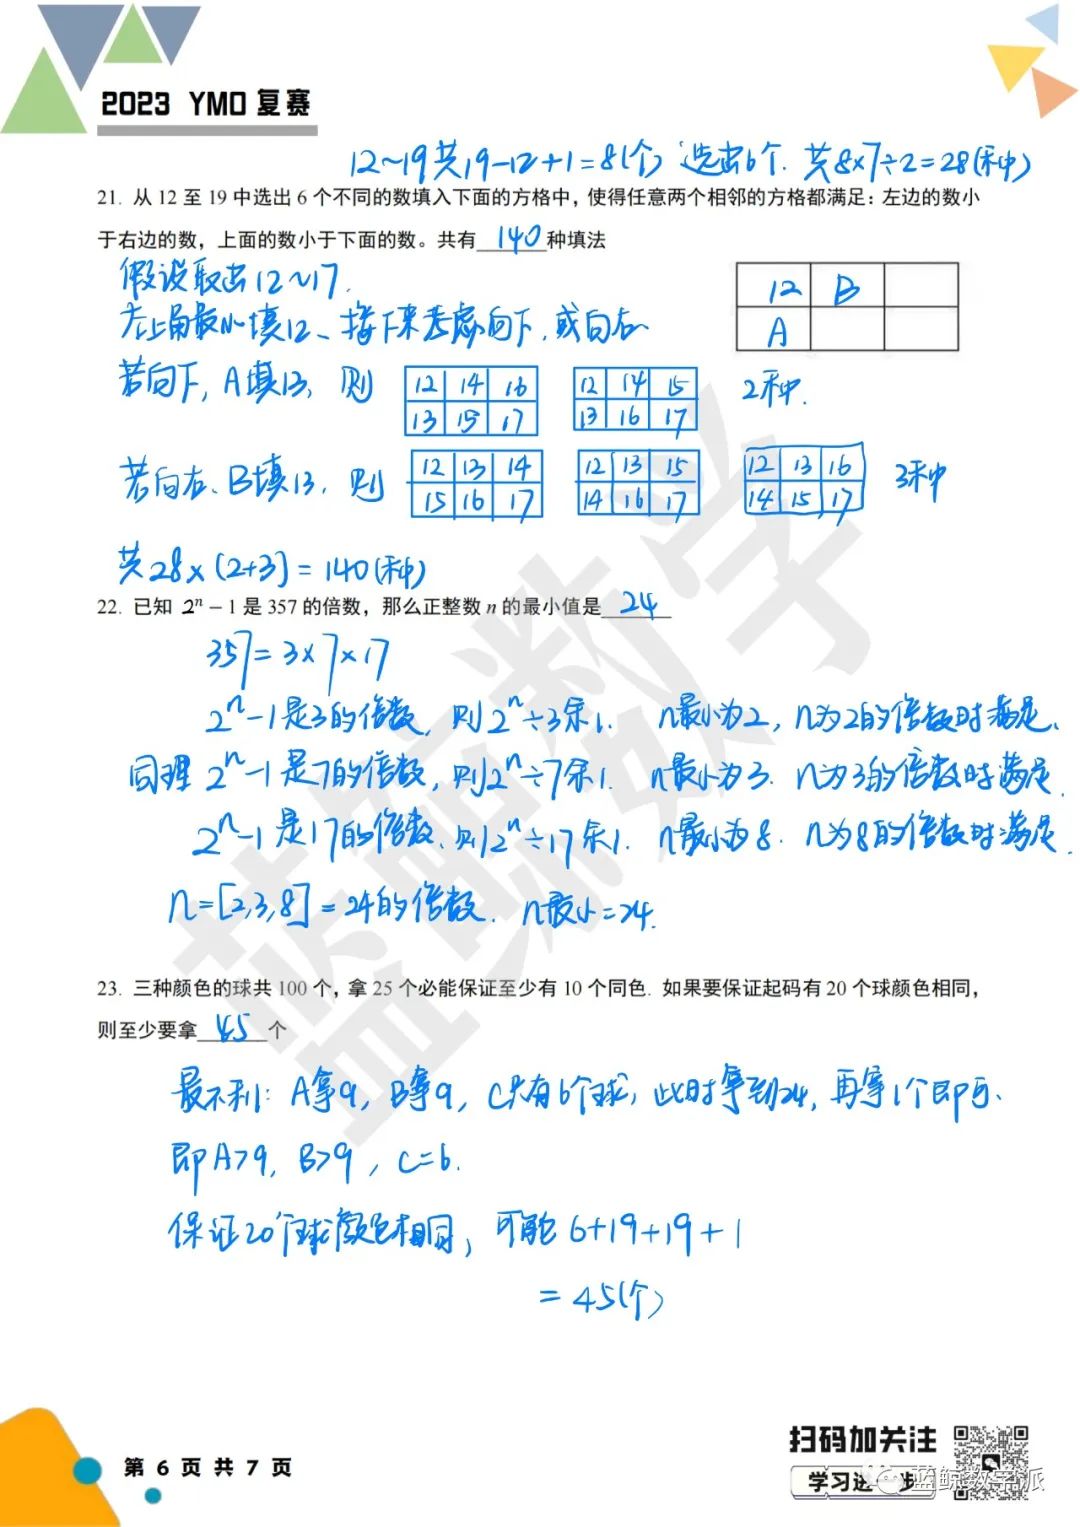 2023 YMO 复赛
12~19共19-12+1=8(个) 选出6个. 共8×7÷2=28(种)
21. 从 12 至 19 中选出 6 个不同的数填入下面的方格中，使得任意两个相邻的方格都满足：左边的数小
于右边的数，上面的数小于下面的数。共有 140 种填法
假设取出12~17.
12 B
左上角最小填12、接下来考虑向下,或向右
A
若向下, A填13, 则
12 14 16
13 15 17
12 14 15
13 16 17
2种.
若向右、B填13, 则
12 13 14
15 16 17
12 13 15
14 16 17
12 13 16
14 15 17
3种
共28×(2+3)=140(种)
22. 已知 2ⁿ－1 是 357 的倍数，那么正整数 n 的最小值是 24
357=3×7×17
2ⁿ-1是3的倍数, 则2ⁿ÷3余1. n最小为2, n为2的倍数时满足.
同理 2ⁿ-1是7的倍数, 则2ⁿ÷7余1. n最小为3. n为3的倍数时满足.
2ⁿ-1是17的倍数, 则2ⁿ÷17余1. n最小为8. n为8的倍数时满足.
n=[2,3,8]=24的倍数. n最小=24.
23. 三种颜色的球共 100 个，拿 25 个必能保证至少有 10 个同色. 如果要保证起码有 20 个球颜色相同，
则至少要拿 45 个
最不利: A拿9, B拿9, C只有6个球, 此时拿到24, 再拿1个即可.
即A>9, B>9, C=6.
保证20个球颜色相同, 可能 6+19+19+1
=45(个)
扫码加关注
学习进一步
蓝鲸数学派
第 6 页 共 7 页
蓝鲸数学